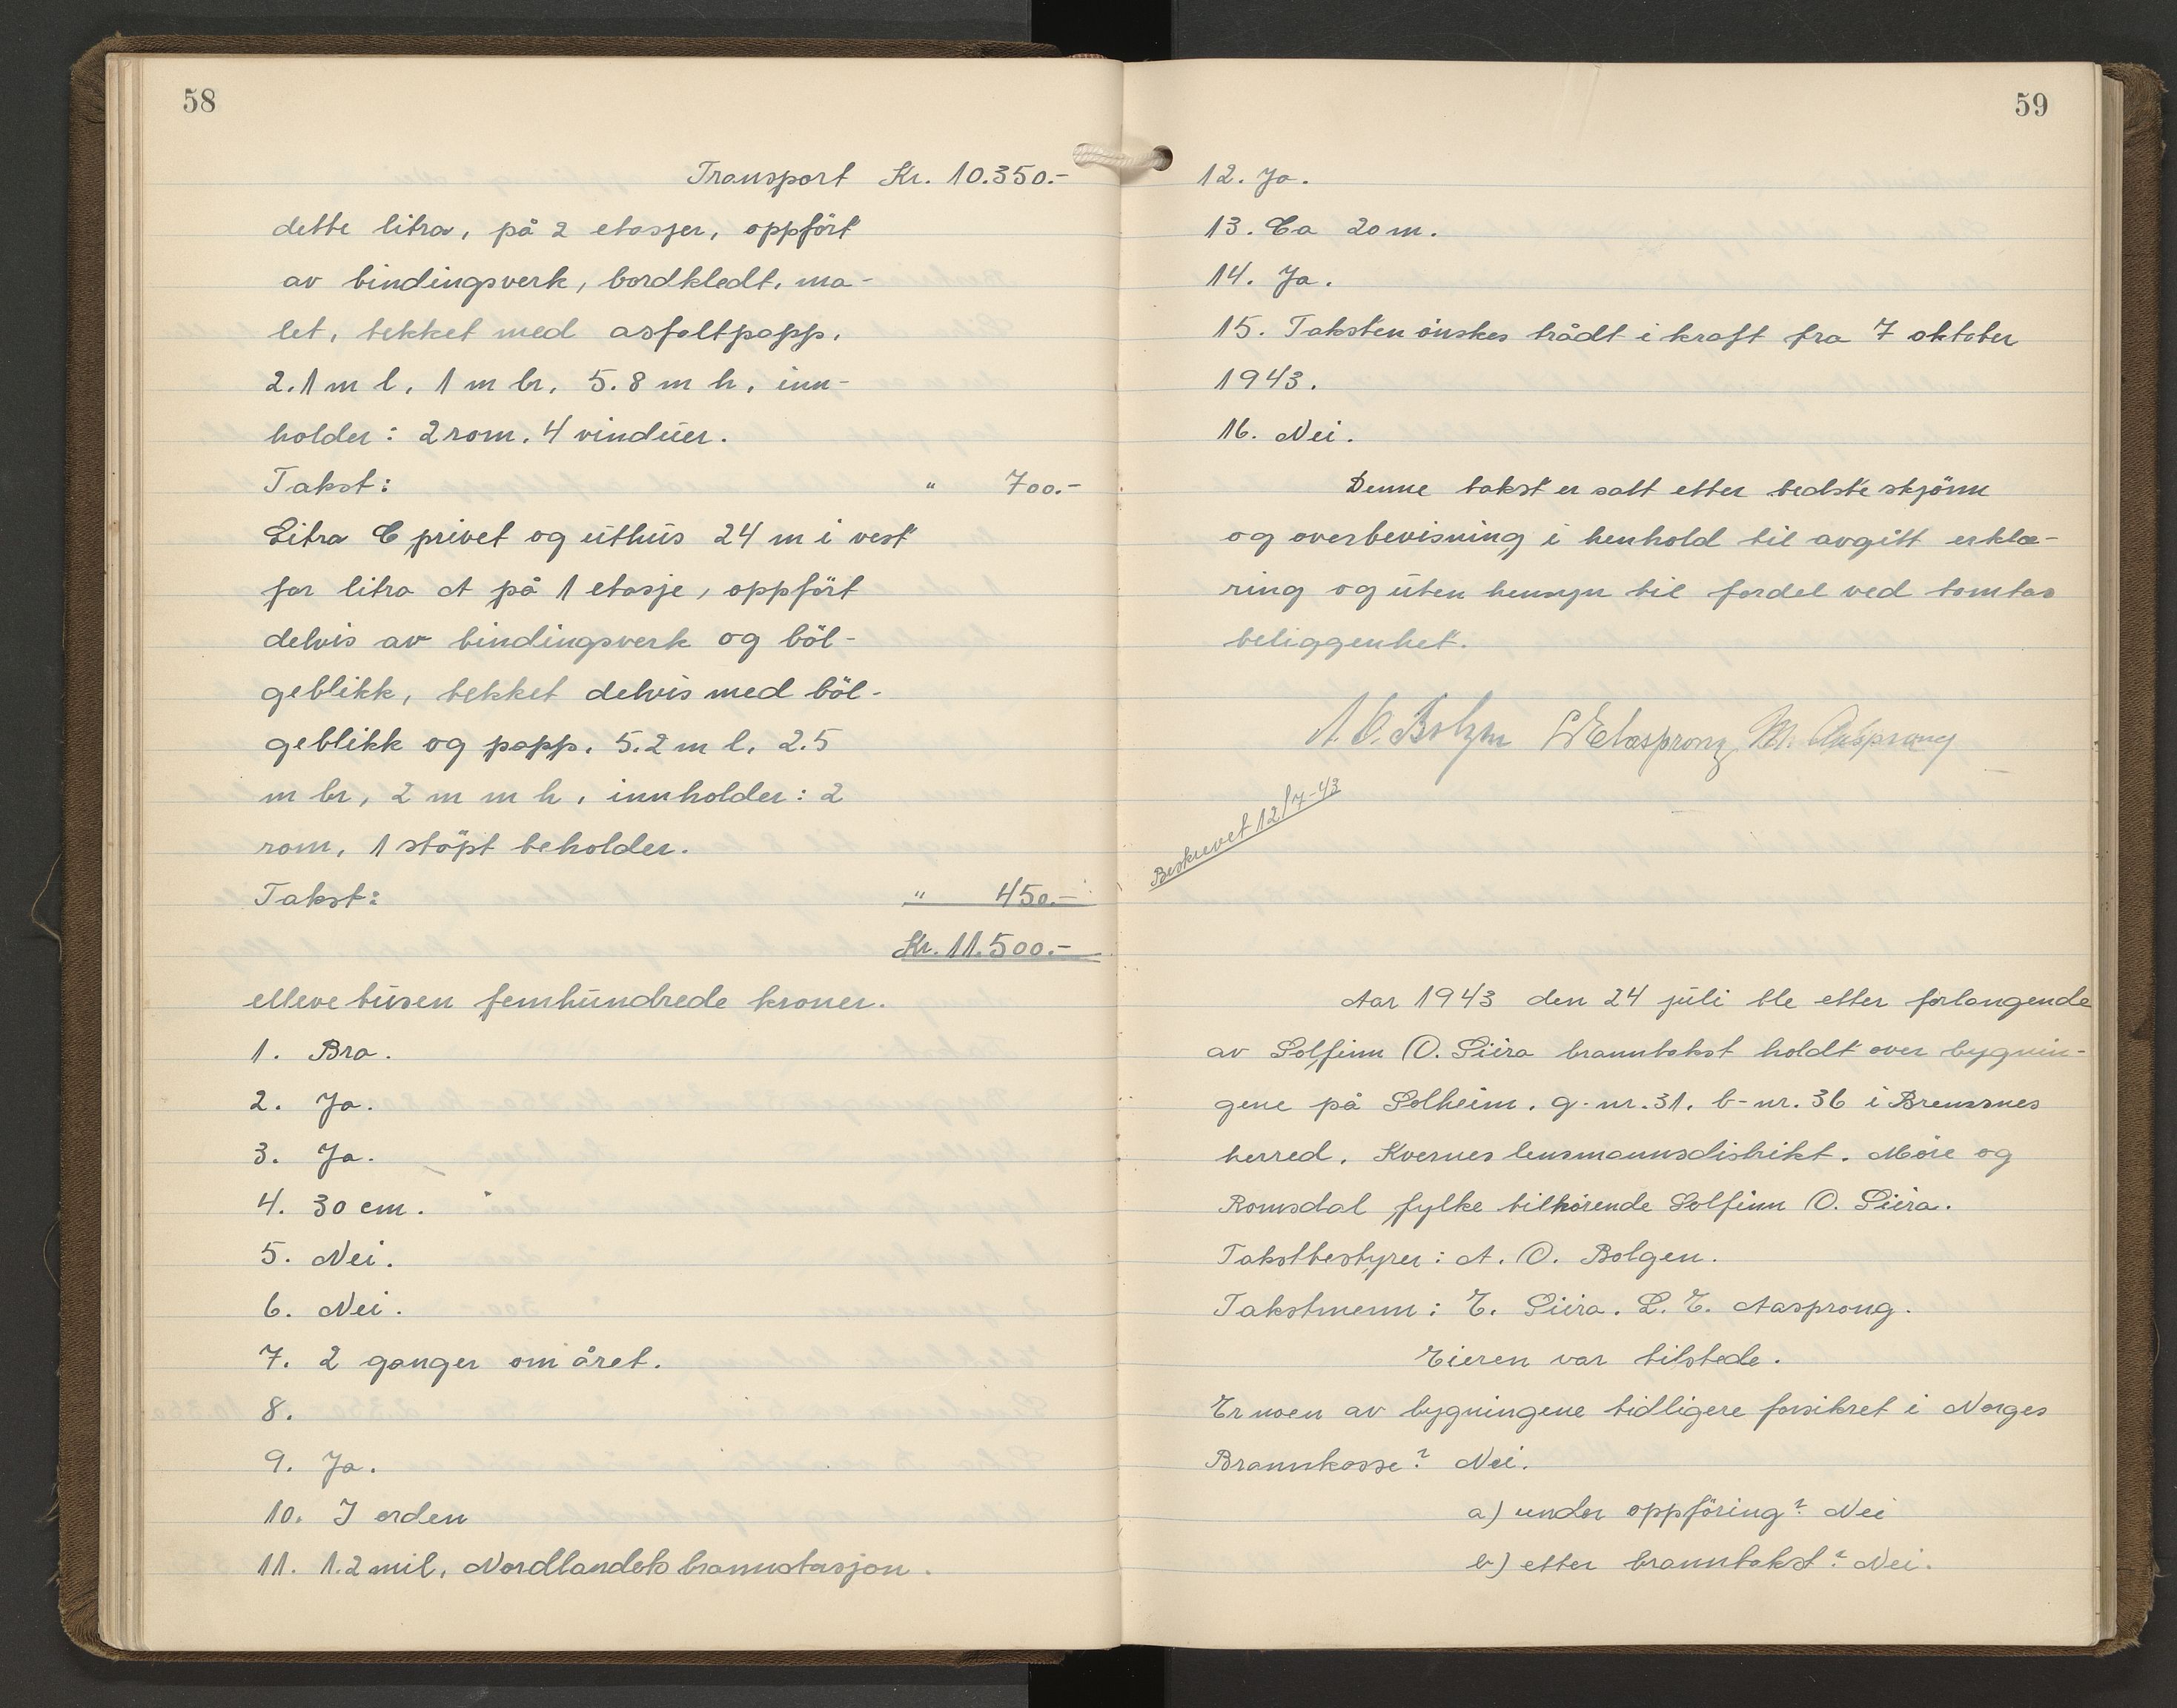 58
Transport Kr. 10.350.-
dette litra, på 2 etasjer, oppført
av bindingsverk, bordkledt, ma-
let, tekket med asfaltpapp,
2.1 m l, 1 m br, 5.8 m h, inn-
holder: 2 rom, 4 vinduer.
Takst: " 700.-
Litra C privet og uthus 24 m i vest
for litra A på 1 etasje, oppført
delvis av bindingsverk og böl-
geblikk, tekket delvis med böl-
geblikk og papp, 5.2 m l, 2.5
m br, 2 m m h, innholder: 2
rom, 1 støpt beholder.
Takst: " 450.-
Kr. 11.500.-
elleve tusen femhundrede kroner.
1. Bra.
2. Ja.
3. Ja.
4. 30 cm.
5. Nei.
6. Nei.
7. 2 ganger om året.
8.
9. Ja.
10. I orden
11. 1.2 mil, Nordlandets brannstasjon.
59
12. Ja.
13. Ca 20 m.
14. Ja.
15. Taksten ønskes trådt i kraft fra 7 oktober
1943.
16. Nei.
Denne takst er satt etter bedste skjönn
og overbevisning i henhold til avgitt erklæ-
ring og uten hensyn til fordel ved tomtas
beliggenhet.
A. O. Bolgen L E Aasprong M. Aasprong
Beskrevet 12/7-43
Aar 1943 den 24 juli ble etter forlangende
av Solfinn O. Siira branntakst holdt over bygnin-
gene på Solheim, g-nr. 31, b-nr. 36 i Bremsnes
herred, Kvernes lensmannsdistrikt, Møre og
Romsdal fylke tilhørende Solfinn O. Siira.
Takstbestyrer: A. O. Bolgen.
Takstmenn: E. Siira, L. E. Aasprong.
Eieren var tilstede.
Er noen av bygningene tidligere forsikret i Norges
Brannkasse? Nei.
a) under oppföring? Nei
b) etter branntakst? Nei.